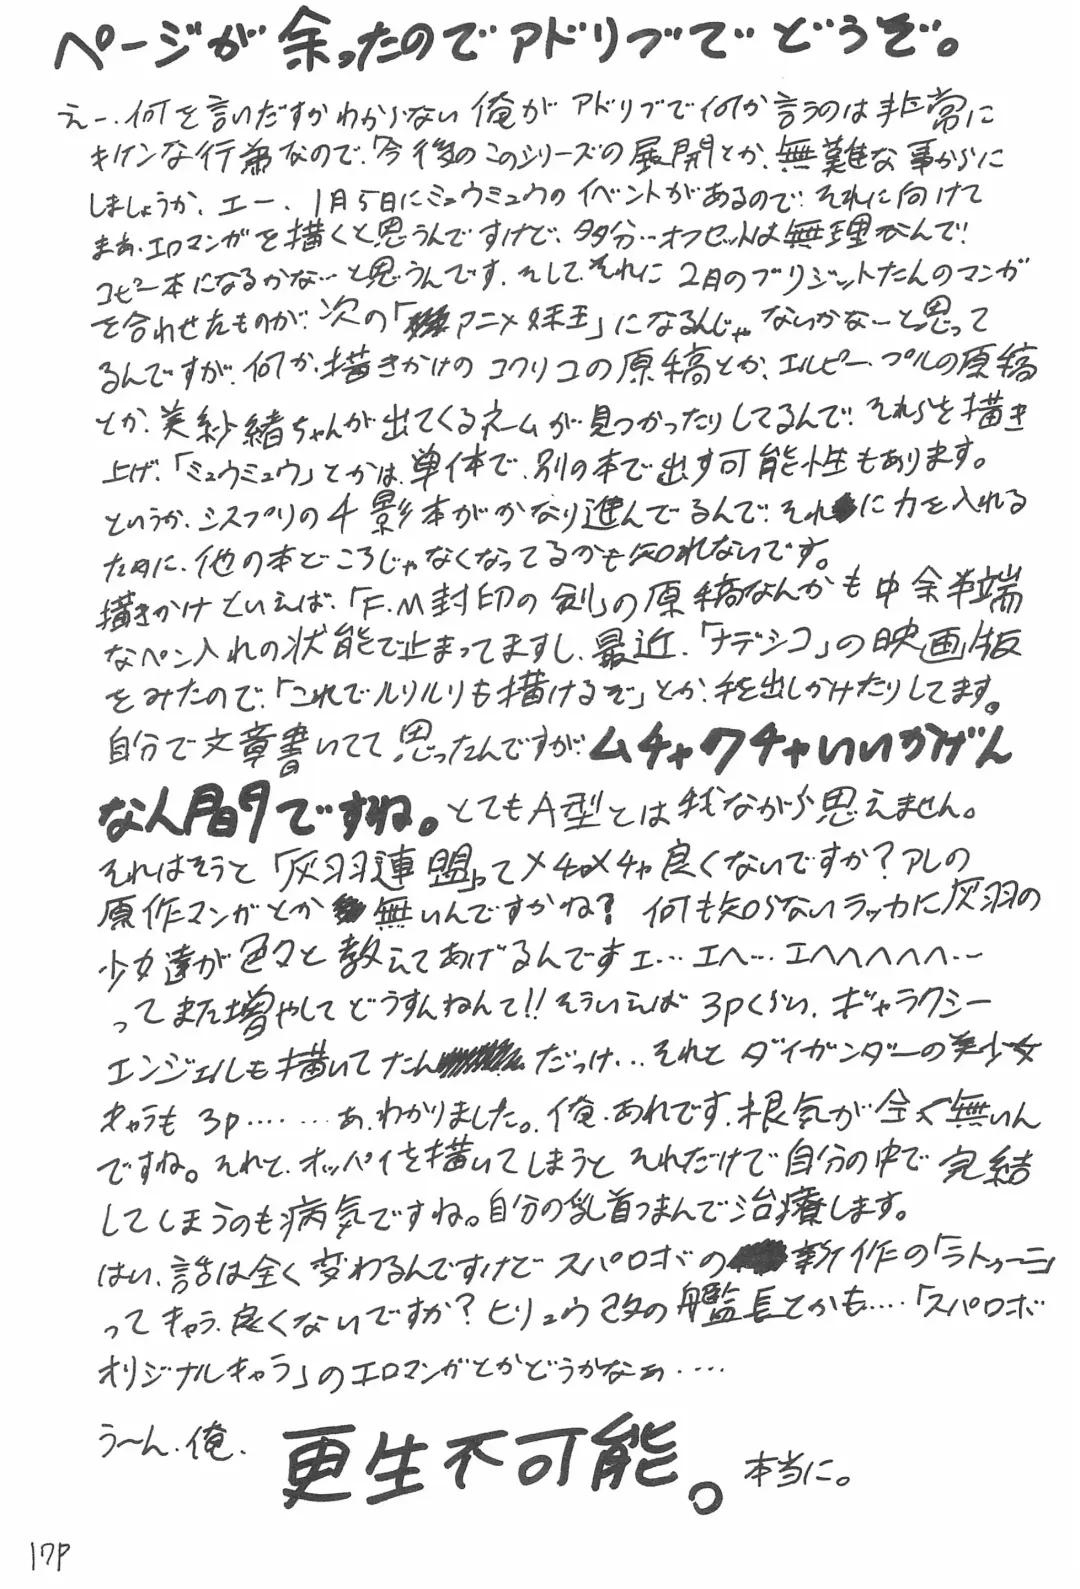 ページが余ったのでアドリブでどうぞ。
えー、何を言いだすかわからない俺がアドリブで何か言うのは非常に
キケンな行為なので、「今後のこのシリーズの展開とか、無難な事からに
しましょうか、エー、1月5日にミュウミュウのイベントがあるので、それに向けて
まあ、エロマンガを描くと思うんですけど、多分…オフセットは無理なんで、
コピー本になるかな…と思うんです。そして、それに2月のブリジットたんのマンガ
を合わせたものが、次の「アニメ妹王」になるんじゃないかなーと思って
るんですが、何か、描きかけのコクリコの原稿とか、エルピー・プルの原稿
とか、美紗緒ちゃんが出てくるネームが見つかったりしてるんで、それらを描き
上げ、「ミュウミュウ」とかは、単体で、別の本で出す可能性もあります。
というか、シスプリの千影本がかなり進んでるんで、それに力を入れる
ために、他の本どころじゃなくなってるかも知れないです。
描きかけといえば、「F.M封印の剣」の原稿なんかも中余半端
なペン入れの状態で止まってますし、最近、「ナデシコ」の映画版
をみたので、「これでルリルリも描けるぞ」とか、手を出しかけたりしてます。
自分で文章書いてて思ったんですが、ムチャクチャいいかげん
な人間ですね。とてもA型とは我ながら思えません。
それはそうと「灰羽連盟」ってメチャメチャ良くないですか?アレの
原作マンガとか無いんですかね?何も知らないラッカに灰羽の
少女達が色々と教えてあげるんですェ…エヘ…エヘヘヘヘヘ…
ってまた増やしてどうすんねんて!!そういえば3Pくらい、ギャラクシー
エンジェルも描いてたんだっけ…それとダイガンダーの美少女
キャラも3P……あ、わかりました。俺、あれです、根気が全く無いん
ですね。それと、オッパイを描いてしまうとそれだけで自分の中で完結
してしまうのも病気ですね。自分の乳首つまんで治療します。
はい、話は全く変わるんですけどスパロボの新作の「ラトゥーニ」
ってキャラ、良くないですか?ヒリュウ改の艦長とかも…「スパロボ
オリジナルキャラ」のエロマンガとかどうかなぁ…
う〜ん、俺、更生不可能。本当に。
17P